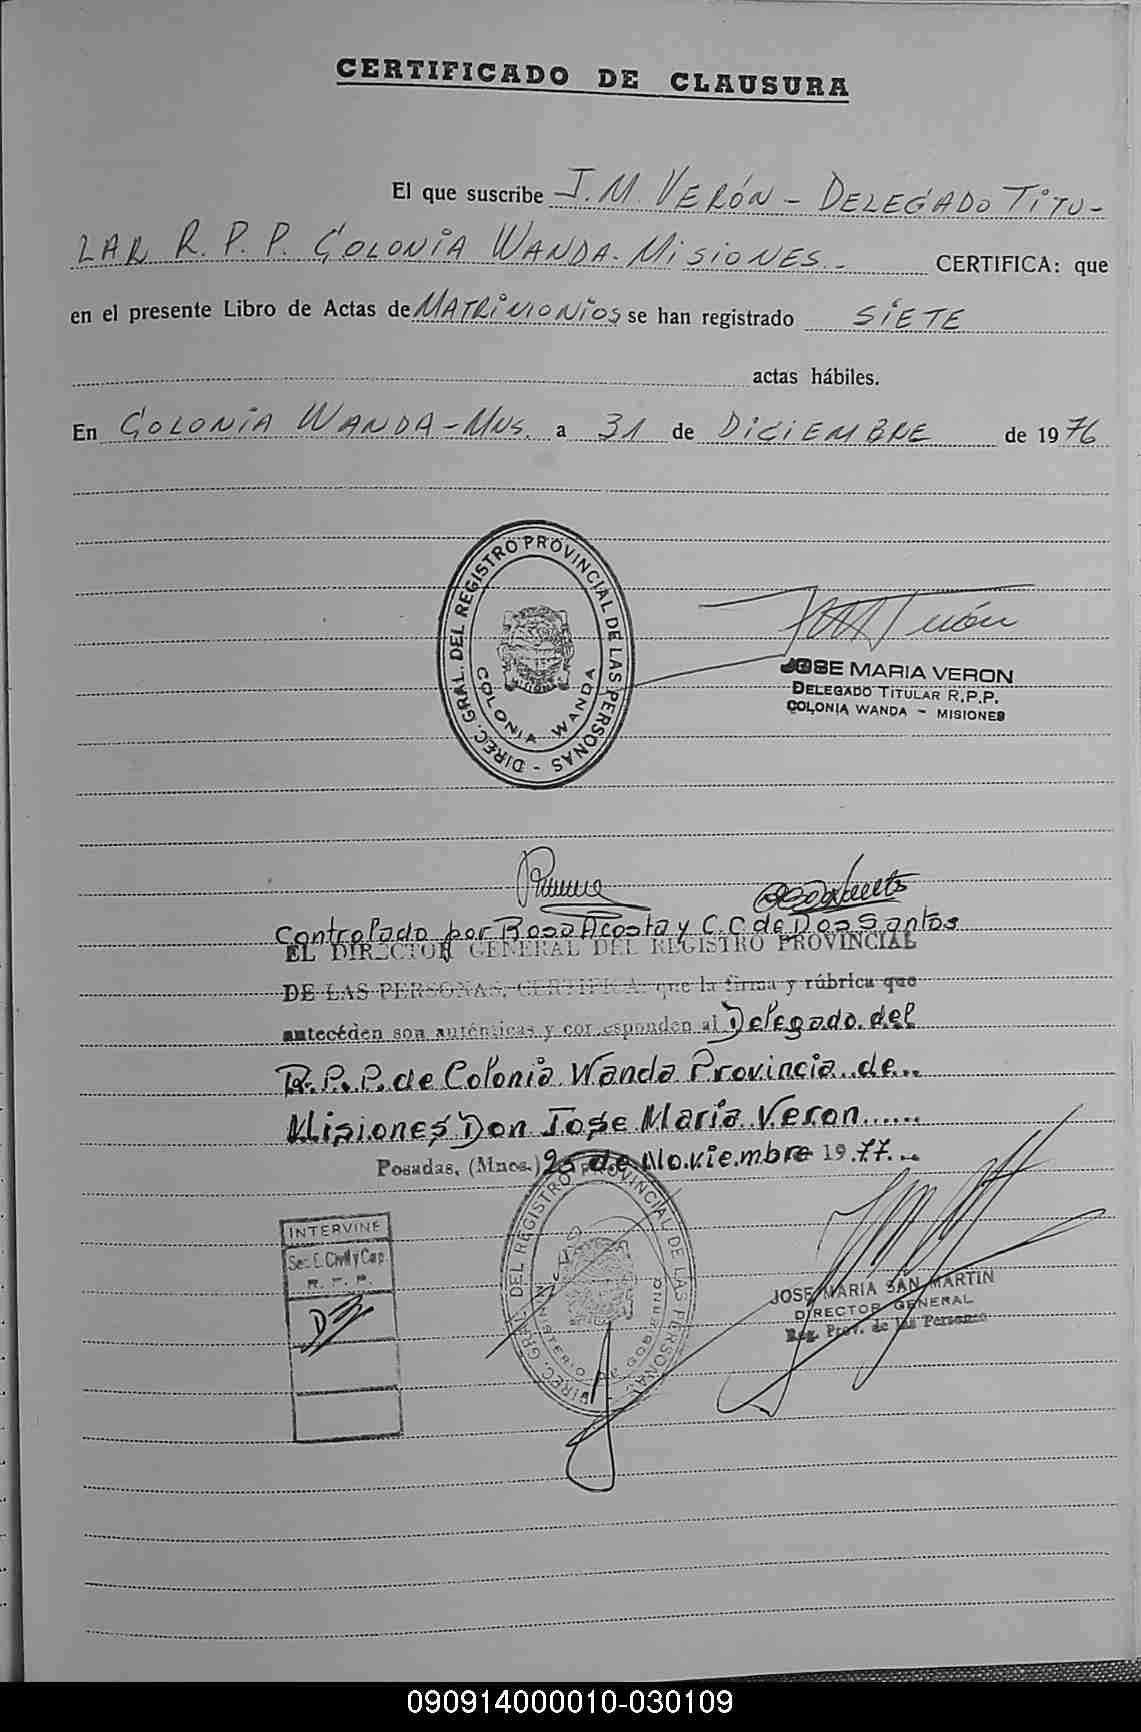 CERTIFICADO DE CLAUSURA
El que suscribe J. M. VERÓN - DELEGADO TITU-
LAR R. P. P. COLONIA WANDA - MISIONES - CERTIFICA: que
en el presente Libro de Actas de MATRIMONIOS se han registrado SIETE
actas hábiles.
En COLONIA WANDA - MNS. a 31 de DICIEMBRE de 1976
DIREC. GRAL. DEL REGISTRO PROVINCIAL DE LAS PERSONAS -
COLONIA WANDA
JOSE MARIA VERON
DELEGADO TITULAR R.P.P.
COLONIA WANDA - MISIONES
Controlado por Rosa Acosta y C. C de Dos Santos
EL DIRECTOR GENERAL DEL REGISTRO PROVINCIAL
DE LAS PERSONAS, CERTIFICA: que la firma y rúbrica que
antecéden son auténticas y corresponden al Delegado del
R. P. P. de Colonia Wanda Provincia de..
Misiones Don Jose Maria Veron......
Posadas, (Mnes.) de Noviembre 1977...
INTERVINE
Sec. E. Civil y Cap.
R. P. P.
DIREC. GRAL. DEL REGISTRO PROVINCIAL DE LAS PERSONAS
MINISTERIO DE GOBIERNO
JOSE MARIA SAN MARTIN
DIRECTOR GENERAL
Reg. Prov. de las Personas
090914000010-030109